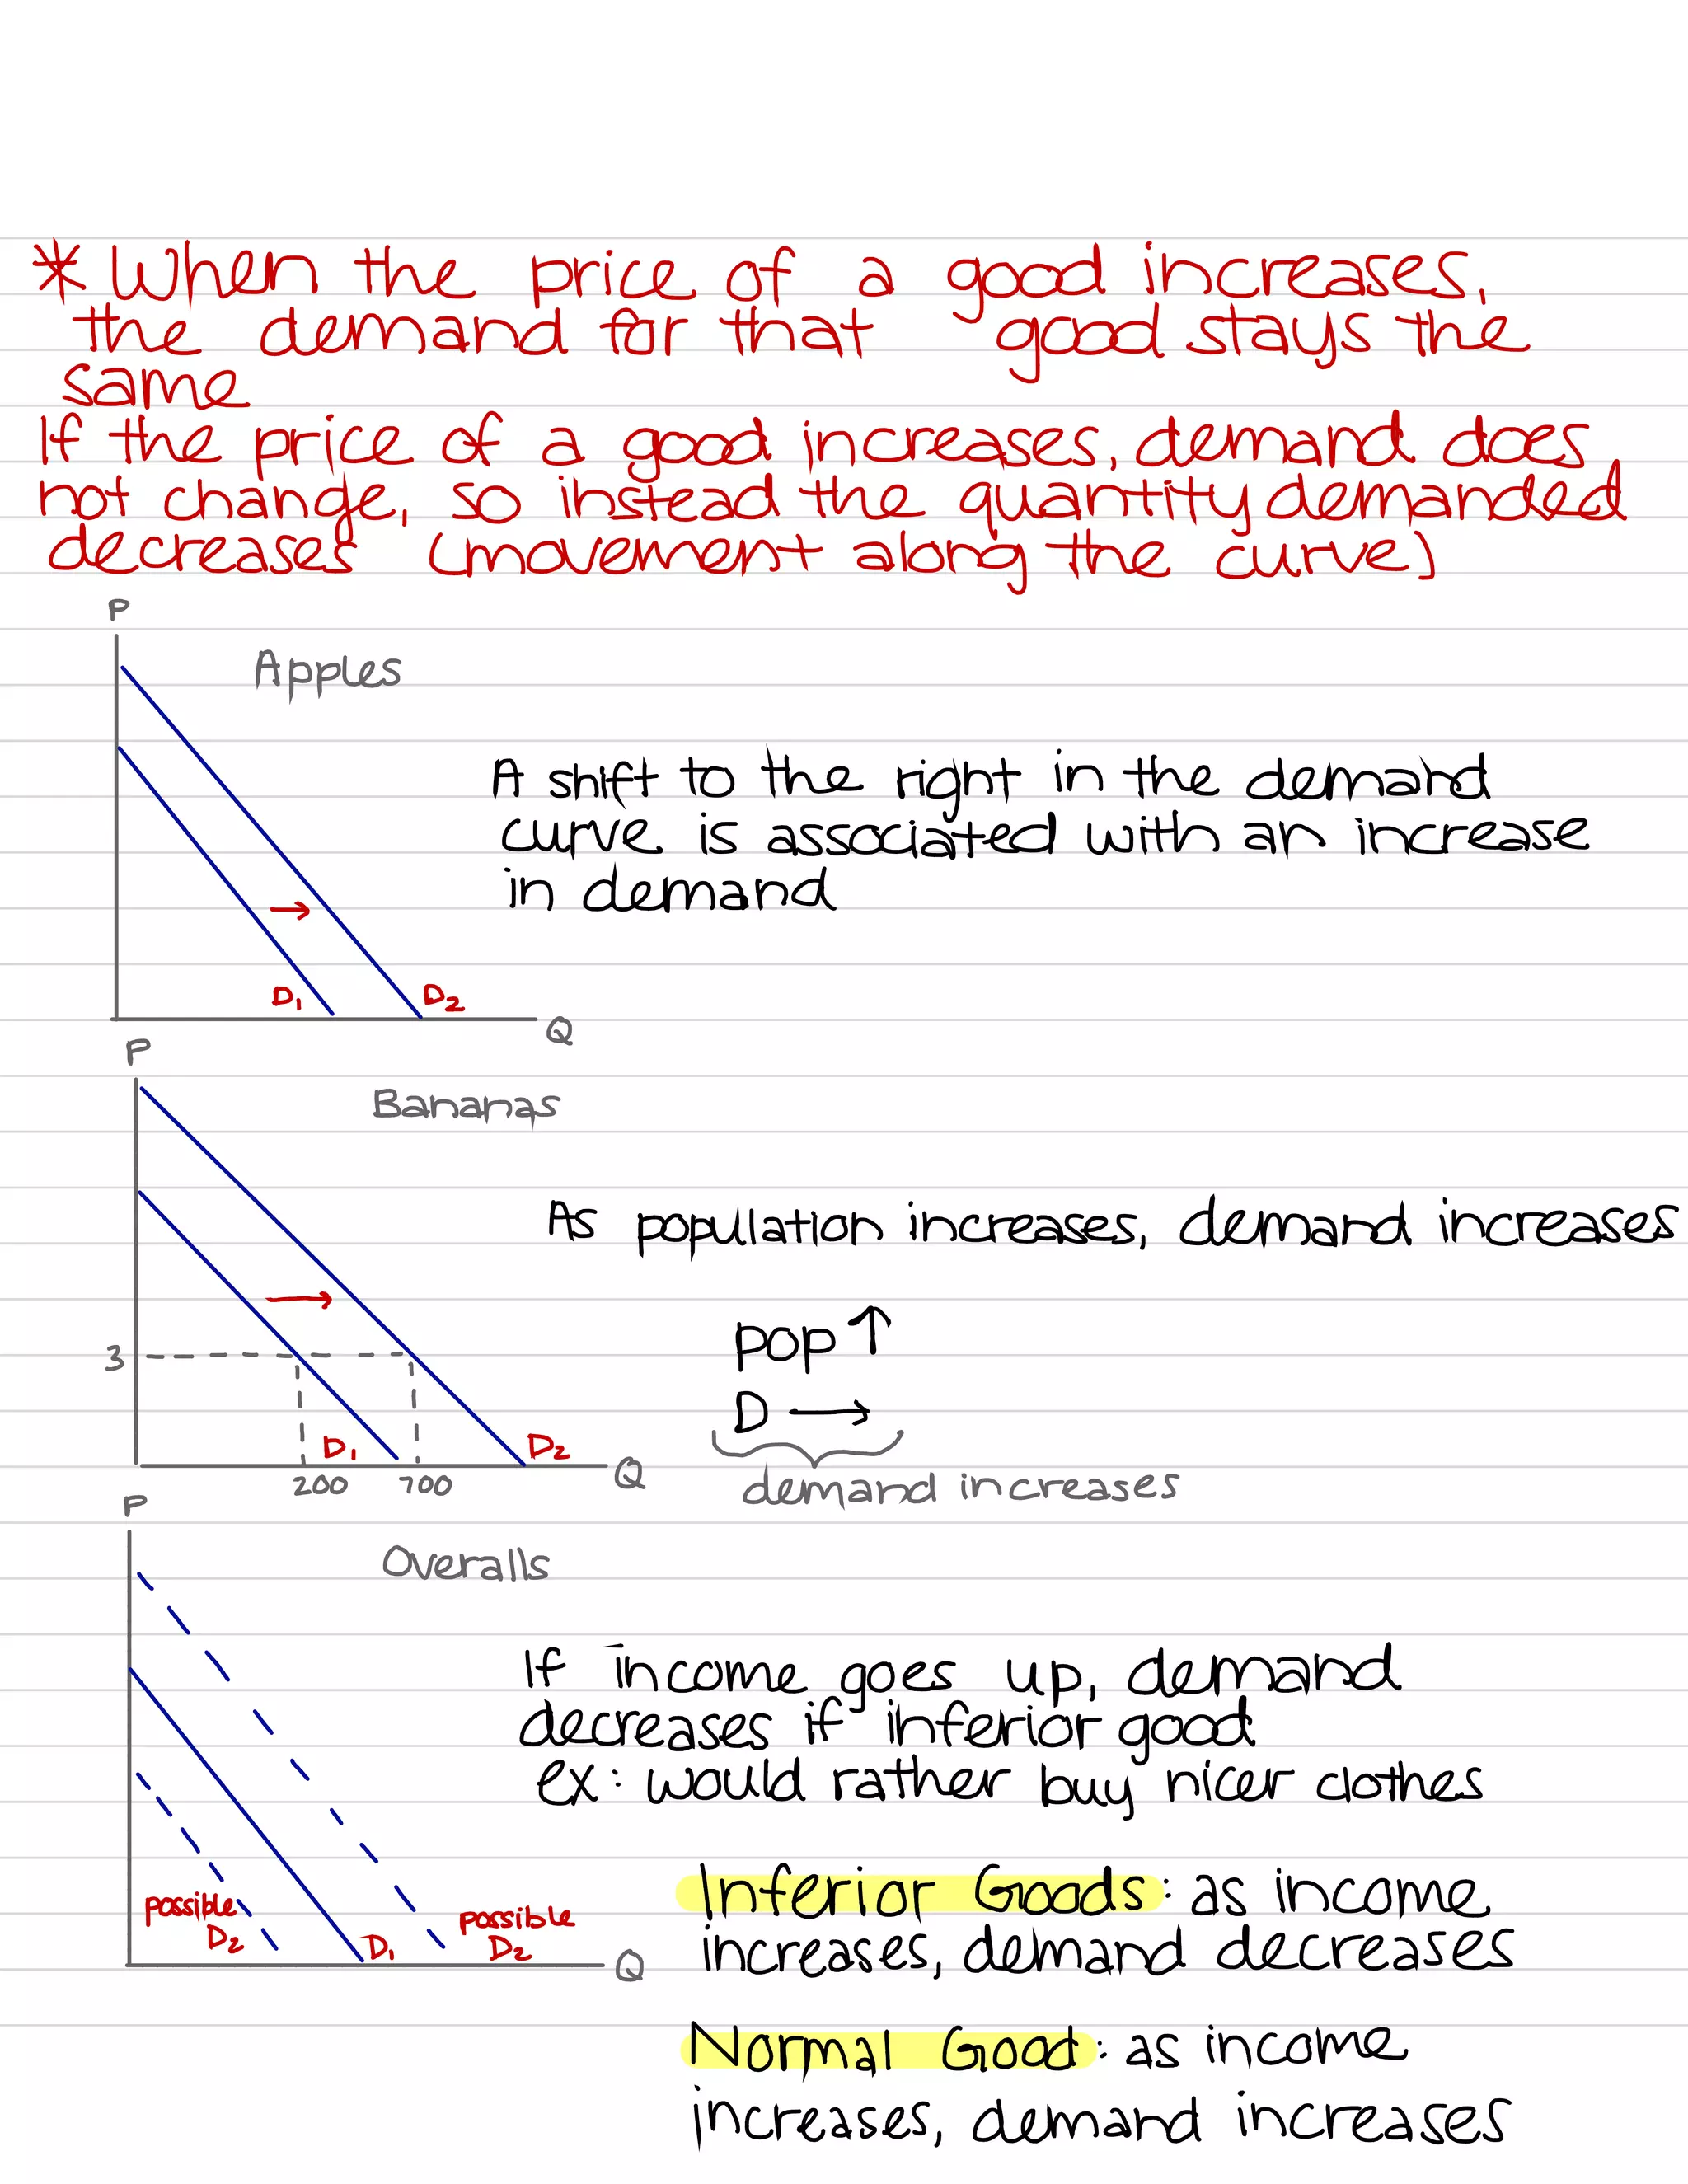 * When the price of a good increases,
the demand for that good stays the
same
If the price of a good increases, demand does
not change, so instead the quantity demanded
decreases (movement along the curve)
P
Apples
A shift to the right in the demand
curve is associated with an increase
in demand
→
D₁ D₂
Q
P
Bananas
As population increases, demand increases
→
3
pop ↑
D →
D₁ D₂
200 700 Q
demand increases
P
Overalls
If income goes up, demand
decreases if inferior good
ex: would rather buy nicer clothes
Inferior Goods: as income
increases, demand decreases
possible
D₂
D₁
possible
D₂
Q
Normal Good: as income
increases, demand increases